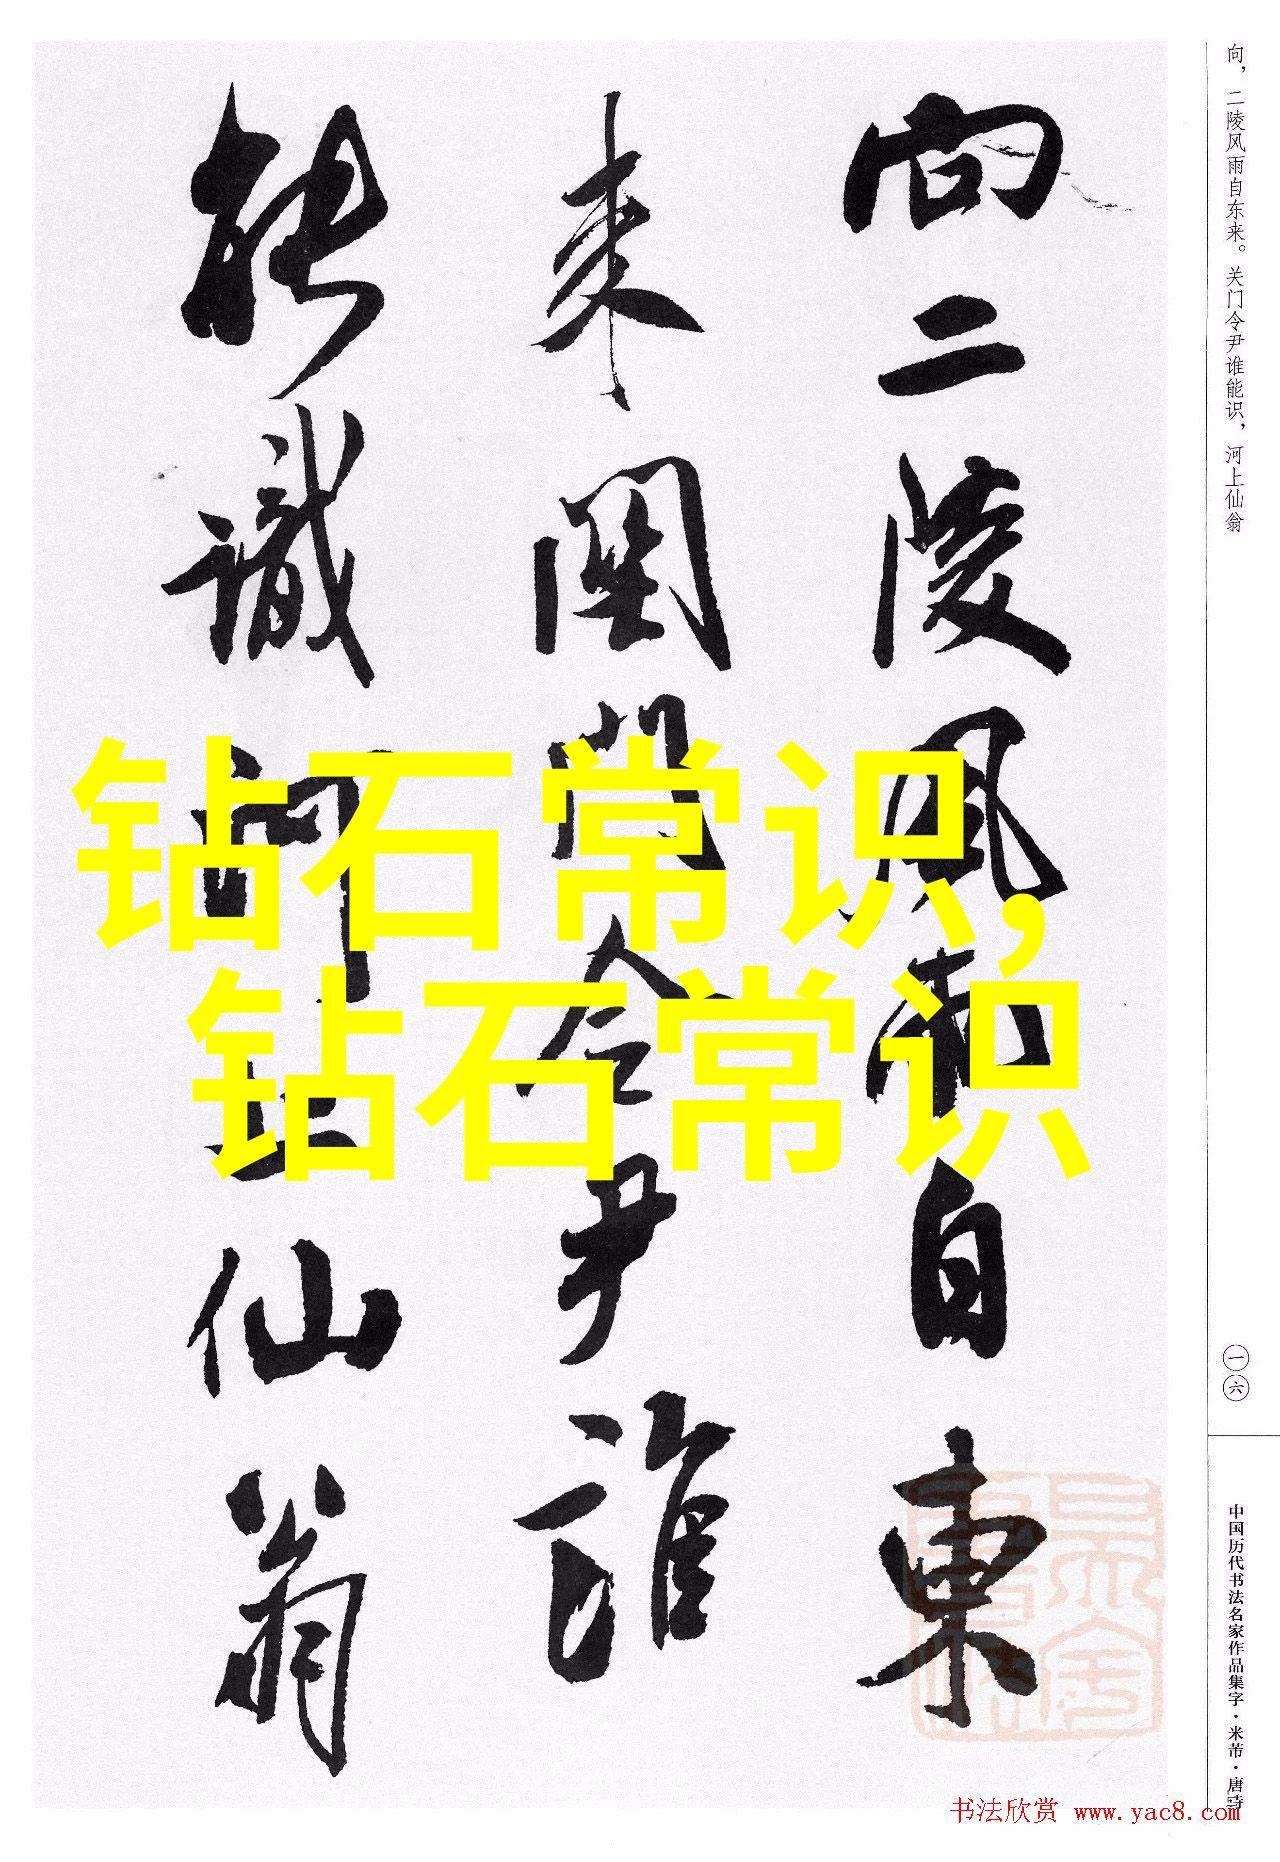 向二陵風雨自東
来關門令尹誰
能識河上仙翁
向，二陵风雨自东来。关门令尹谁能识，河上仙翁
一六
中国历代书法名家作品集字·米芾·唐诗
钻石常识,
钻石常识
书法欣赏 www.yac8.com